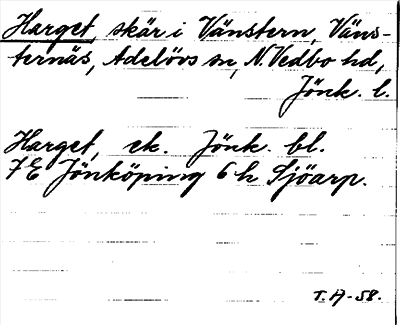 Harget, skär i Vänstern, Väns-
ternäs, Adelövs sn, N. Vedbo hd,
Jönk. l.
Harget, ek. Jönk. bl.
7E Jönköping 6h Sjöarp.
T. A-58.